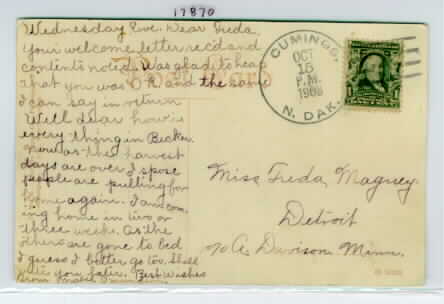 17870
Wednesday Eve. Dear Freda,
Your welcome letter rec'd and
contents noted. Was glad to hear
that you was O.K. and the same
I can say in return
Well dear how is
every thing in Becker.
now as the harvest
days are over I spose
people are pulling for
home again. I am com-
ing home in two or
three weeks. As the
others are gone to bed
I guess I better go too. Shall
write you later. Best Wishes
from
Post Card
CUMINGS,
OCT
15
P.M.
N. DAK.
Miss Freda Magney.
Detroit
c/o A. Davison. Minn.